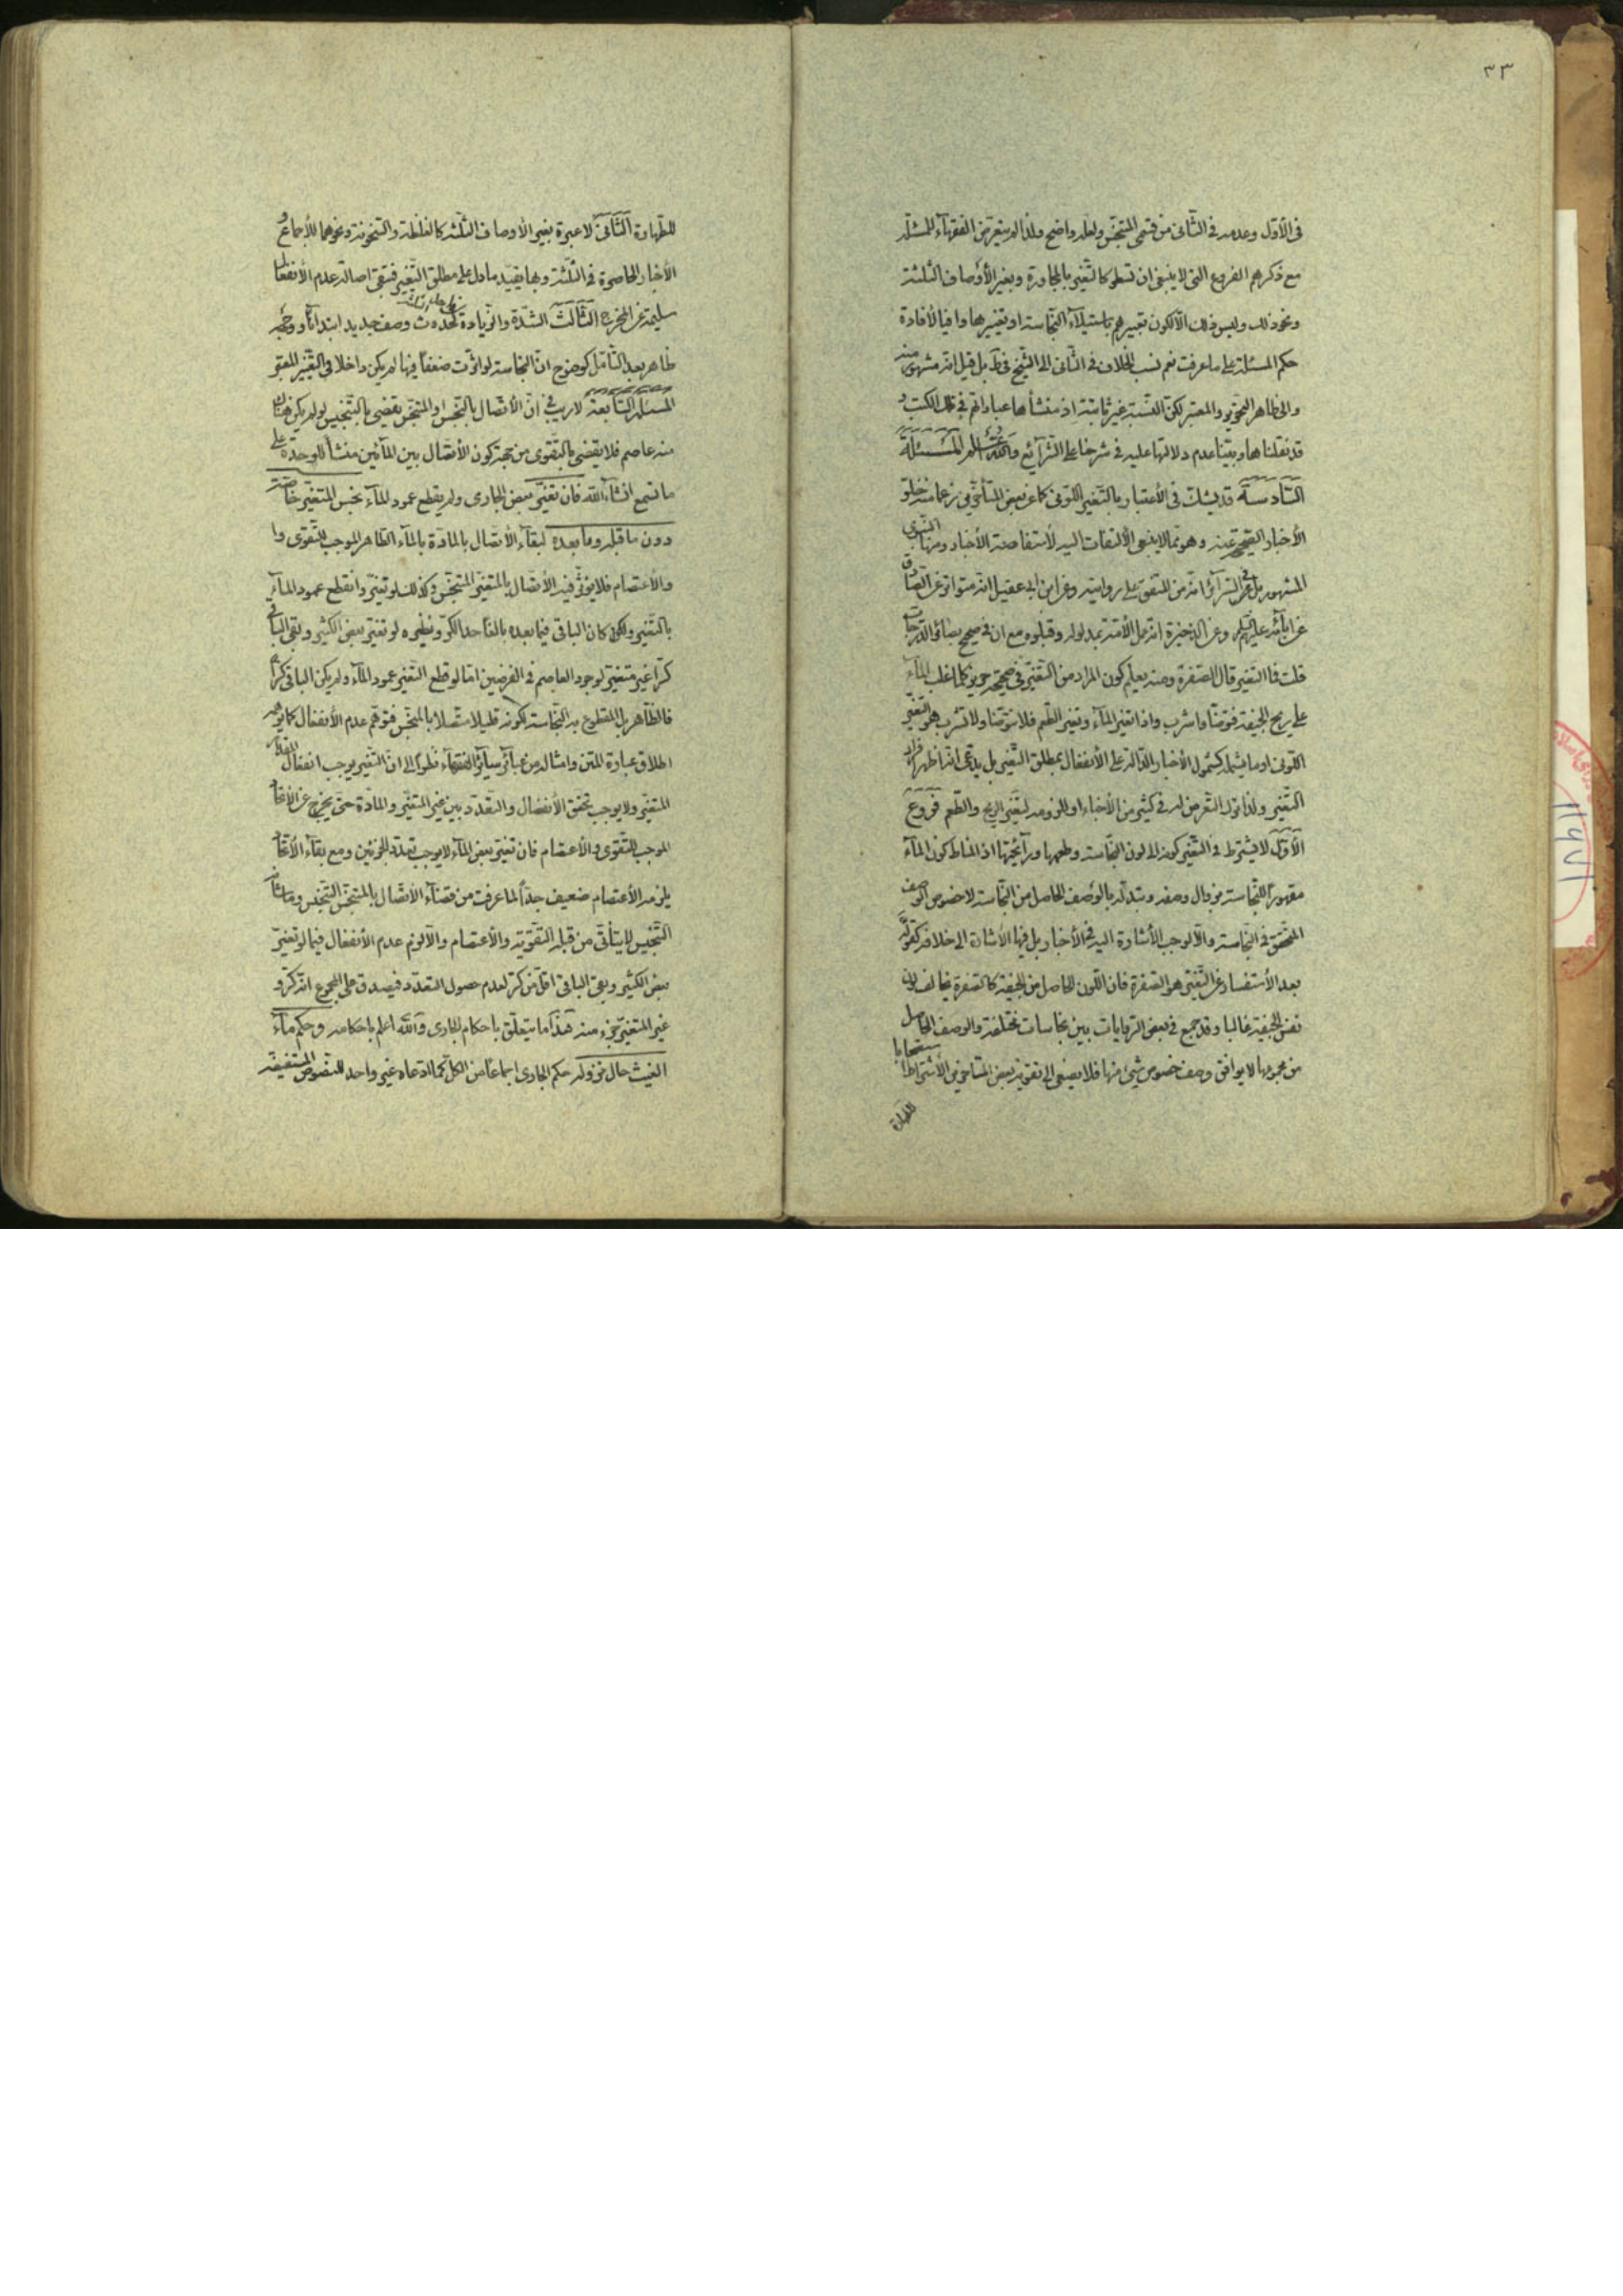 ٣٣
فى الأوّل وعدمه فى الثّانى من قسمى المتنجّس ولعلّه واضح ولذا لم يتعرّض الفقهآء للمسئلة
مع ذكرهم الفروع التى لا ينبغى ان تسطر كالتّغير بالمجاورة وبغير الأوصاف الثلثة
ونحو ذلك وليس ذلك الّا لكون تعبيرهم باستيلآء النّجاسة او تغييرها وافيا لأفادة
حكم المسئلة على ما عرفت نعم نسب الخلاف فى الثّانى الى الشّيخ فى ط بل قيل انّه مشهور منه
والى ظاهر التحرير والمعتبر لكنّ النّسبة غير ثابتة اذ منشأها عباراتهم فى تلك الكتب و
قد نقلناها وبيّنا عدم دلالتها عليه فى شرحنا على الشّرآئع والله العالم المسئلة
السّادسة قد يشك فى الأعتبار بالتّغير اللّونى كما عن بعض المتأخّرين زعما منه خلوّ
الأخبار الصّحيحة عنه وهو ممّا لا ينبغى الألتفات اليه لأستفاضة الأخبار ومنها النّبوى
المشهور بل عن السّرآئر انّه من المتّفق على روايته وعن ابن ابى عقيل انّه متواتر عن الصّادق
عن آبائه عليهم السلم وعن الذّخيرة انّه عمل الأمّة بمدلوله وقبلوه مع ان فى صحيح بصائر الدّرجات
قلت فما التغير قال الصّفرة ومنه يعلم كون المراد من التّغيّر فى صحيحة حريز كلّما غلب المآء
على ريح الجيفة فتوضّأ واشرب واذا تغير المآء وتغير الطّعم فلا تتوضّأ ولا تشرب هو التغيّر
اللّونى او ما يشمله كشمول الأخبار الدّالة على الأنفعال بمطلق التّغير بل يدّعى انّه اظهر افراد
التّغير ولذا ترك التّعرض له فى كثير من الأخبار او للزومه لتغيّر الريح والطّعم فروع
الأوّل لا يشترط فى التّغير كونه الى لون النّجاسة وطعمها ورآئحتها اذ المناط كون المآء
مقهوراً للنّجاسة بزوال وصفه وتبدّله بالوصف الحاصل من النّجاسة لا خصوص الوصف
المتحقّق فى النجاسة والّا لوجب الأشارة اليه فى الأخبار بل فيها الأشارة الى خلافه كقوله
بعد الأستفسار عن التّغيّر هو الصّفرة فان اللّون الحاصل من الجيفة كالصّفرة يخالف لون
نفس الجيفة غالبا وقد جمع فى بعض الرّوايات بين نجاسات مختلفة والوصف الحاصل
من مجموعها لا يوافق وصف خصوص شيئ منها فلا يصغى الى تقوية بعض المتأخرين الأشتراط استصحابا
للطهارة
للطّهارة الثّانى لا عبرة بغير الأوصاف الثلثة كالغلظة والسّخونة ونحوهما للأجماع و
الأخبار الحاصرة فى الثّلثة وبها يقيّد ما دل على مطلق التّغير فتبقى اصالة عدم الأنفعال
سليمة عن المخرج الثّالث الشّدة والزّيادة كحدوث وصف جديد ابتدائا ووجهه
ظاهر بعد التّأمّل كوضوح انّ النجاسة لو اثّرت ضعفاً فيها لم يكن داخلا فى التّغيّر المعتبر
المسئلة السّابعة لا ريب فى انّ الأتّصال بالنّجس او المتنجّس يقضى بالتّنجيس لو لم يكن هناك
منه عاصم فلا يقضى بالتّقوى من جهة كون الأتّصال بين المآئين منشأ للوحدة على
ما تسمع انشآء الله فان تغيّر بعض الجارى ولم يقطع عمود المآء نجس المتغيّر خاصّة
دون ما قبله وما بعده لبقآء الأتّصال بالمادّة بالمآء الطّاهر الموجب للتّقوى وا
والأعتصام فلا يؤثّر فيه الأتّصال بالمتغيّر المتنجّس وكذلك لو تغيّر وانقطع عمود المآء
بالتّغير ولكن كان الباقى فيما بعده بالغا حد الكر ونظيره لو تغيّر بعض الكثير وبقى الباقى
كرّا غير متغيّر لوجود العاصم فى الفرضين امّا لو قطع التّغير عمود المآء ولم يكن الباقى كرّاً
فالظّاهر بل المقطوع به النّجاسة لكونه قليلا متّصلا بالمتنجّس فتوهّم عدم الأنفعال كما يوهمه
اطلاق عبارة المتن وامثاله من عبآئر سآئر الفقهآء نظراً الى انّ التّغير يوجب انفعال القدر
المتغيّر ولا يوجب تحقق الأنفصال والتّعدّد بين غير المتغيّر والمادّة حتّى يخرج عن الأتّحاد
الموجب للتّقوى والأعتصام فان تغيّر بعض المآء لا يوجب تعدّد الجزئين ومع بقآء الأتّحاد
يلزمه الأعتصام ضعيف جدّاً لما عرفت من قضآء الأتّصال بالمتنجّس التّنجّس وما شأنه
التّنجيس لا يتأتّى من قبله التّقوية والأعتصام والّا لزم عدم الأنفعال فيما لو تغيّر
بعض الكثير وبقى الباقى اقلّ من كرّ لعدم حصول التعدّد فيصدق على المجموع انّه كرّ و
غير المتغيّر جزء منه هذا ما يتعلّق باحكام الجارى والله اعلم باحكامه وحكم مآء
الغيث حال نزوله حكم الجارى اجماعاً من الكل كما ادّعاه غير واحد للنصوص المستفيضة